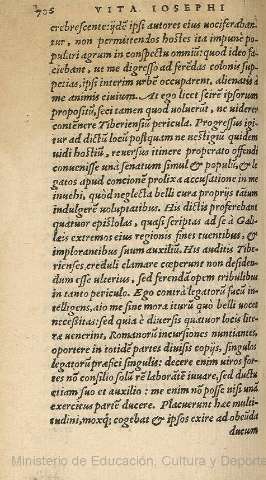 706 VITA IOSEPHI
crebrescente: ijdē ipsi autores eius vociferaban
tur, non permittendos hostes ita impunè po-
pulari agrum in conspectu omniū: quod ideo fa
ciebant, ut me digresso ad ferēdas colonis sup-
petias, ipsi interim urbē occuparent, alienatis à
me animis ciuium. At ego licet scirē ipsorum
propositū, feci tamen quod voluerūt, ne viderer
contēnere Tiberiensiū pericula. Progressus igi-
tur ad dictū locū postquam ne vestigiū quidem
uidi hostiū, reuersus itinere properato offendi
conuenisse unà senatum simul & populū, & le
gatos apud concionē prolixa accusatione in me
inuehi, quòd neglecta belli cura proprijs tātum
indulgerē voluptatibus. His dictis proferebant
quatuor epistolas, quasi scriptas ad se à Gali-
læis extremos eius regionis fines tuentibus, & im-
plorantibus suum auxiliū. His auditis Tibe-
rienses, creduli clamare cœperunt non desiden-
dum esse ulterius, sed ferendā opem tribulibus
in tanto periculo. Ægo contrà legatorū fucū in-
telligens, aio me sine mora iturū quò belli vocet
necessitas: sed quia è diuersis quatuor locis lite-
ræ uenerint, Romanorū incursiones nuntiantes,
oportere in totidē partes diuisis copijs, singulos
legatorū præfici singulis: decere enim uiros for-
tes nō consilio solū rē laborātē iuuare, sed ductu
etiam suo et auxilio: me enim nō posse nisi unā
exercitus partē ducere. Placuerunt hæc multi-
tudini, moxq; cogebat & ipsos exire ad obeūda
ducum
Ministerio de Educación, Cultura y Deporte